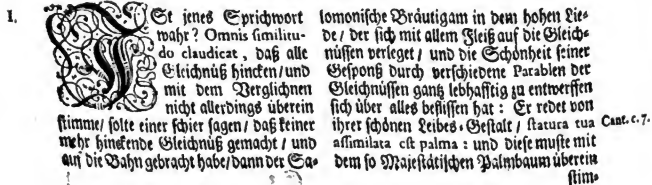 I.
ISt jenes Sprichwort
wahr? Omnis similitu-
do claudicat, daß alle
Gleichnüß hincken/ und
mit dem Verglichnen
nicht allerdings überein
stimme/ solte einer schier sagen/ daß keiner
mehr hinckende Gleichnüß gemacht / und
auf die Bahn gebracht habe/ dann der Sa-
lomonische Bräutigam in dem hohen Lie-
de/ der sich mit allem Fleiß auf die Gleich-
nüssen verleget/ und die Schönheit seiner
Gesponß durch verschiedene Parablen der
Gleichnüssen gantz lebhafftig zu entwerffen
sich über alles beflissen hat: Er redet von
ihrer schönen Leibes-Gestalt/ statura tua
assimilata est palma: und diese muste mit
dem so Majestätischen Palmbaum überein
stim-
Cant. c. 7.